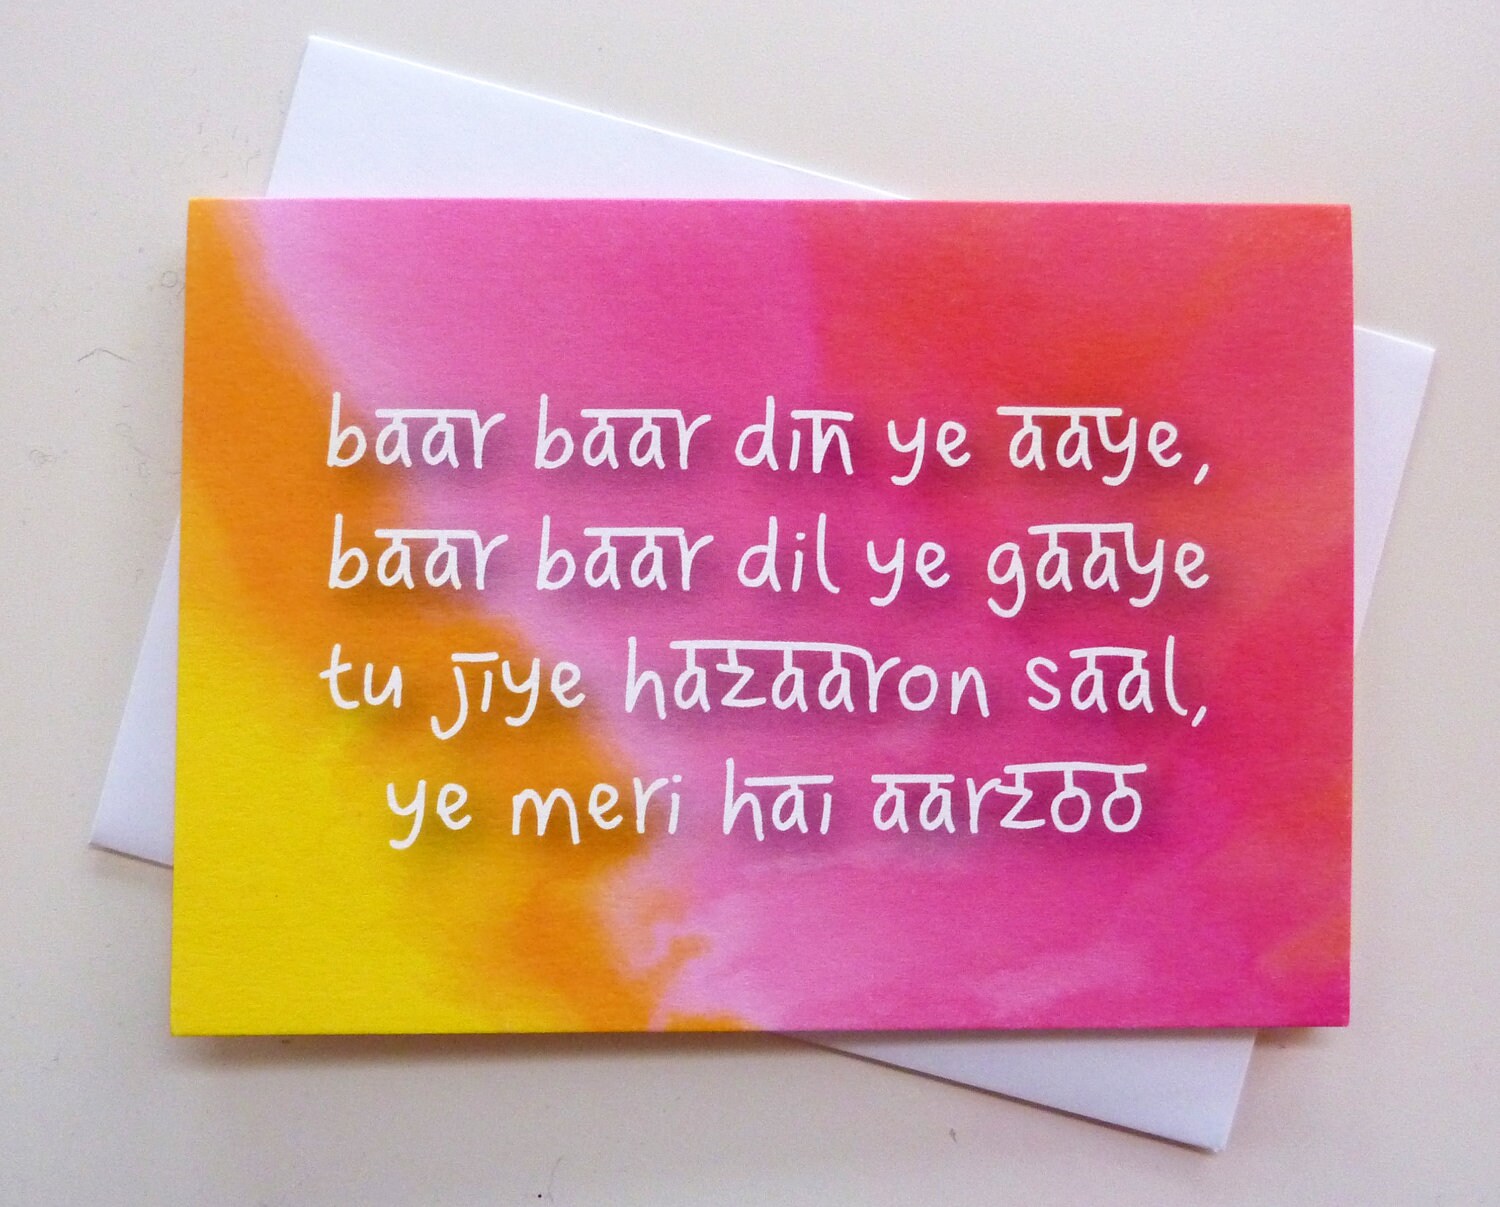 baar baar din ye aaye,
baar baar dil ye gaaye
tu jiye hazaaron saal,
ye meri hai aarzoo